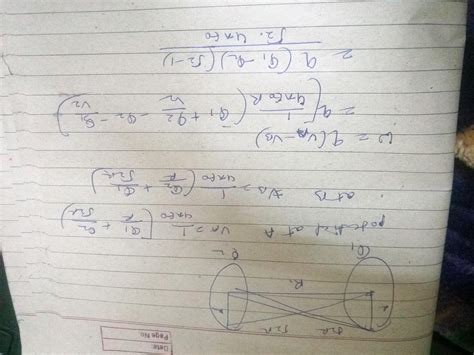 Date:
Page No:
√2R √2R
R
Q1 Q2
potential at A VA = 1/4πε0 (Q1/R + Q2/√2R)
at B VB = 1/4πε0 (Q2/R + Q1/√2R)
W = q(VA - VB)
= q [1/4πε0R (Q1 + Q2/√2 - Q2 - Q1/√2)]
= q(Q1-Q2)(√2-1)/√2.4πε0